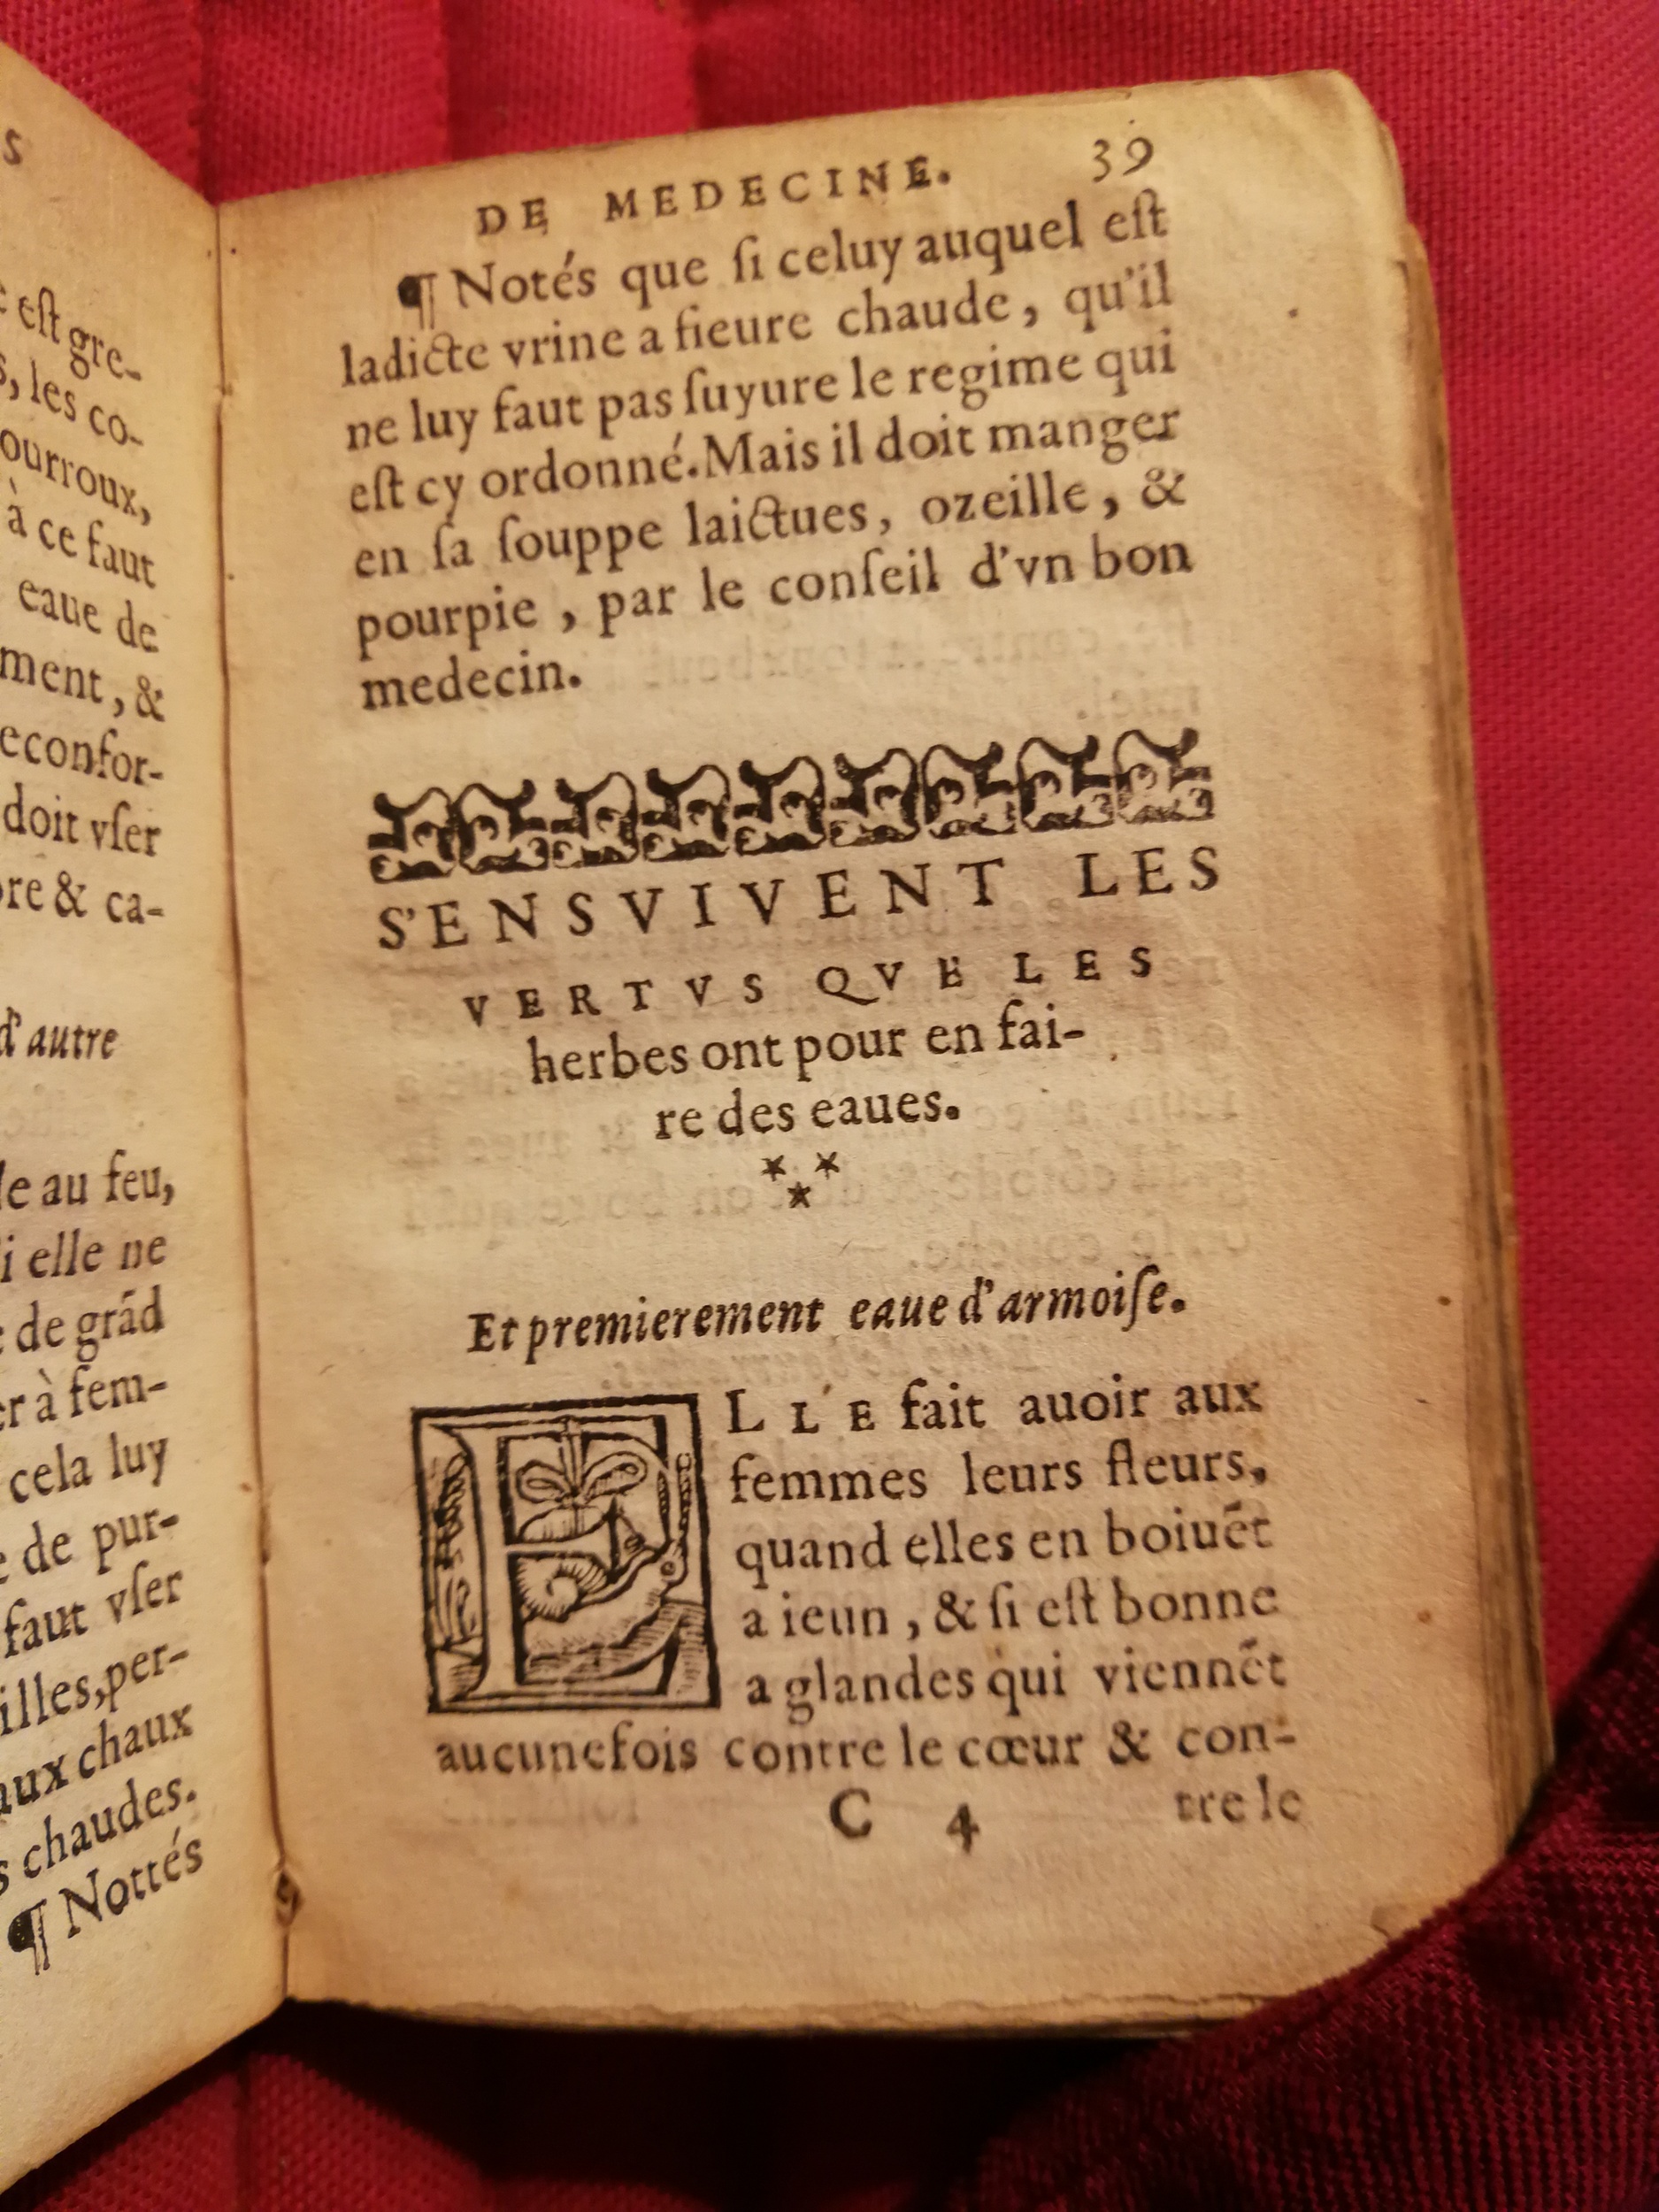 s
est gre-
s, les co-
ourroux,
à ce faut
eaue de
ment, &
econfor-
doit vſer
re & ca-
d'autre
le au feu,
i elle ne
de grãd
er à fem-
cela luy
de pur-
faut vſer
illes, per-
aux chaux
s chaudes.
¶ Nottés
DE MEDECINE. 39
¶ Notés que ſi celuy auquel eſt
ladicte vrine a fieure chaude, qu'il
ne luy faut pas ſuyure le regime qui
eſt cy ordonné. Mais il doit manger
en ſa ſouppe laictues, ozeille, &
pourpie, par le conſeil d'vn bon
medecin.
S'ENSVIVENT LES
VERTVS QVE LES
herbes ont pour en fai-
re des eaues.
* *
*
Et premierement eaue d'armoiſe.
ELLE fait auoir aux
femmes leurs fleurs,
quand elles en boiuẽt
a ieun, & ſi eſt bonne
a glandes qui viennẽt
aucunefois contre le cœur & con-
C 4 tre le